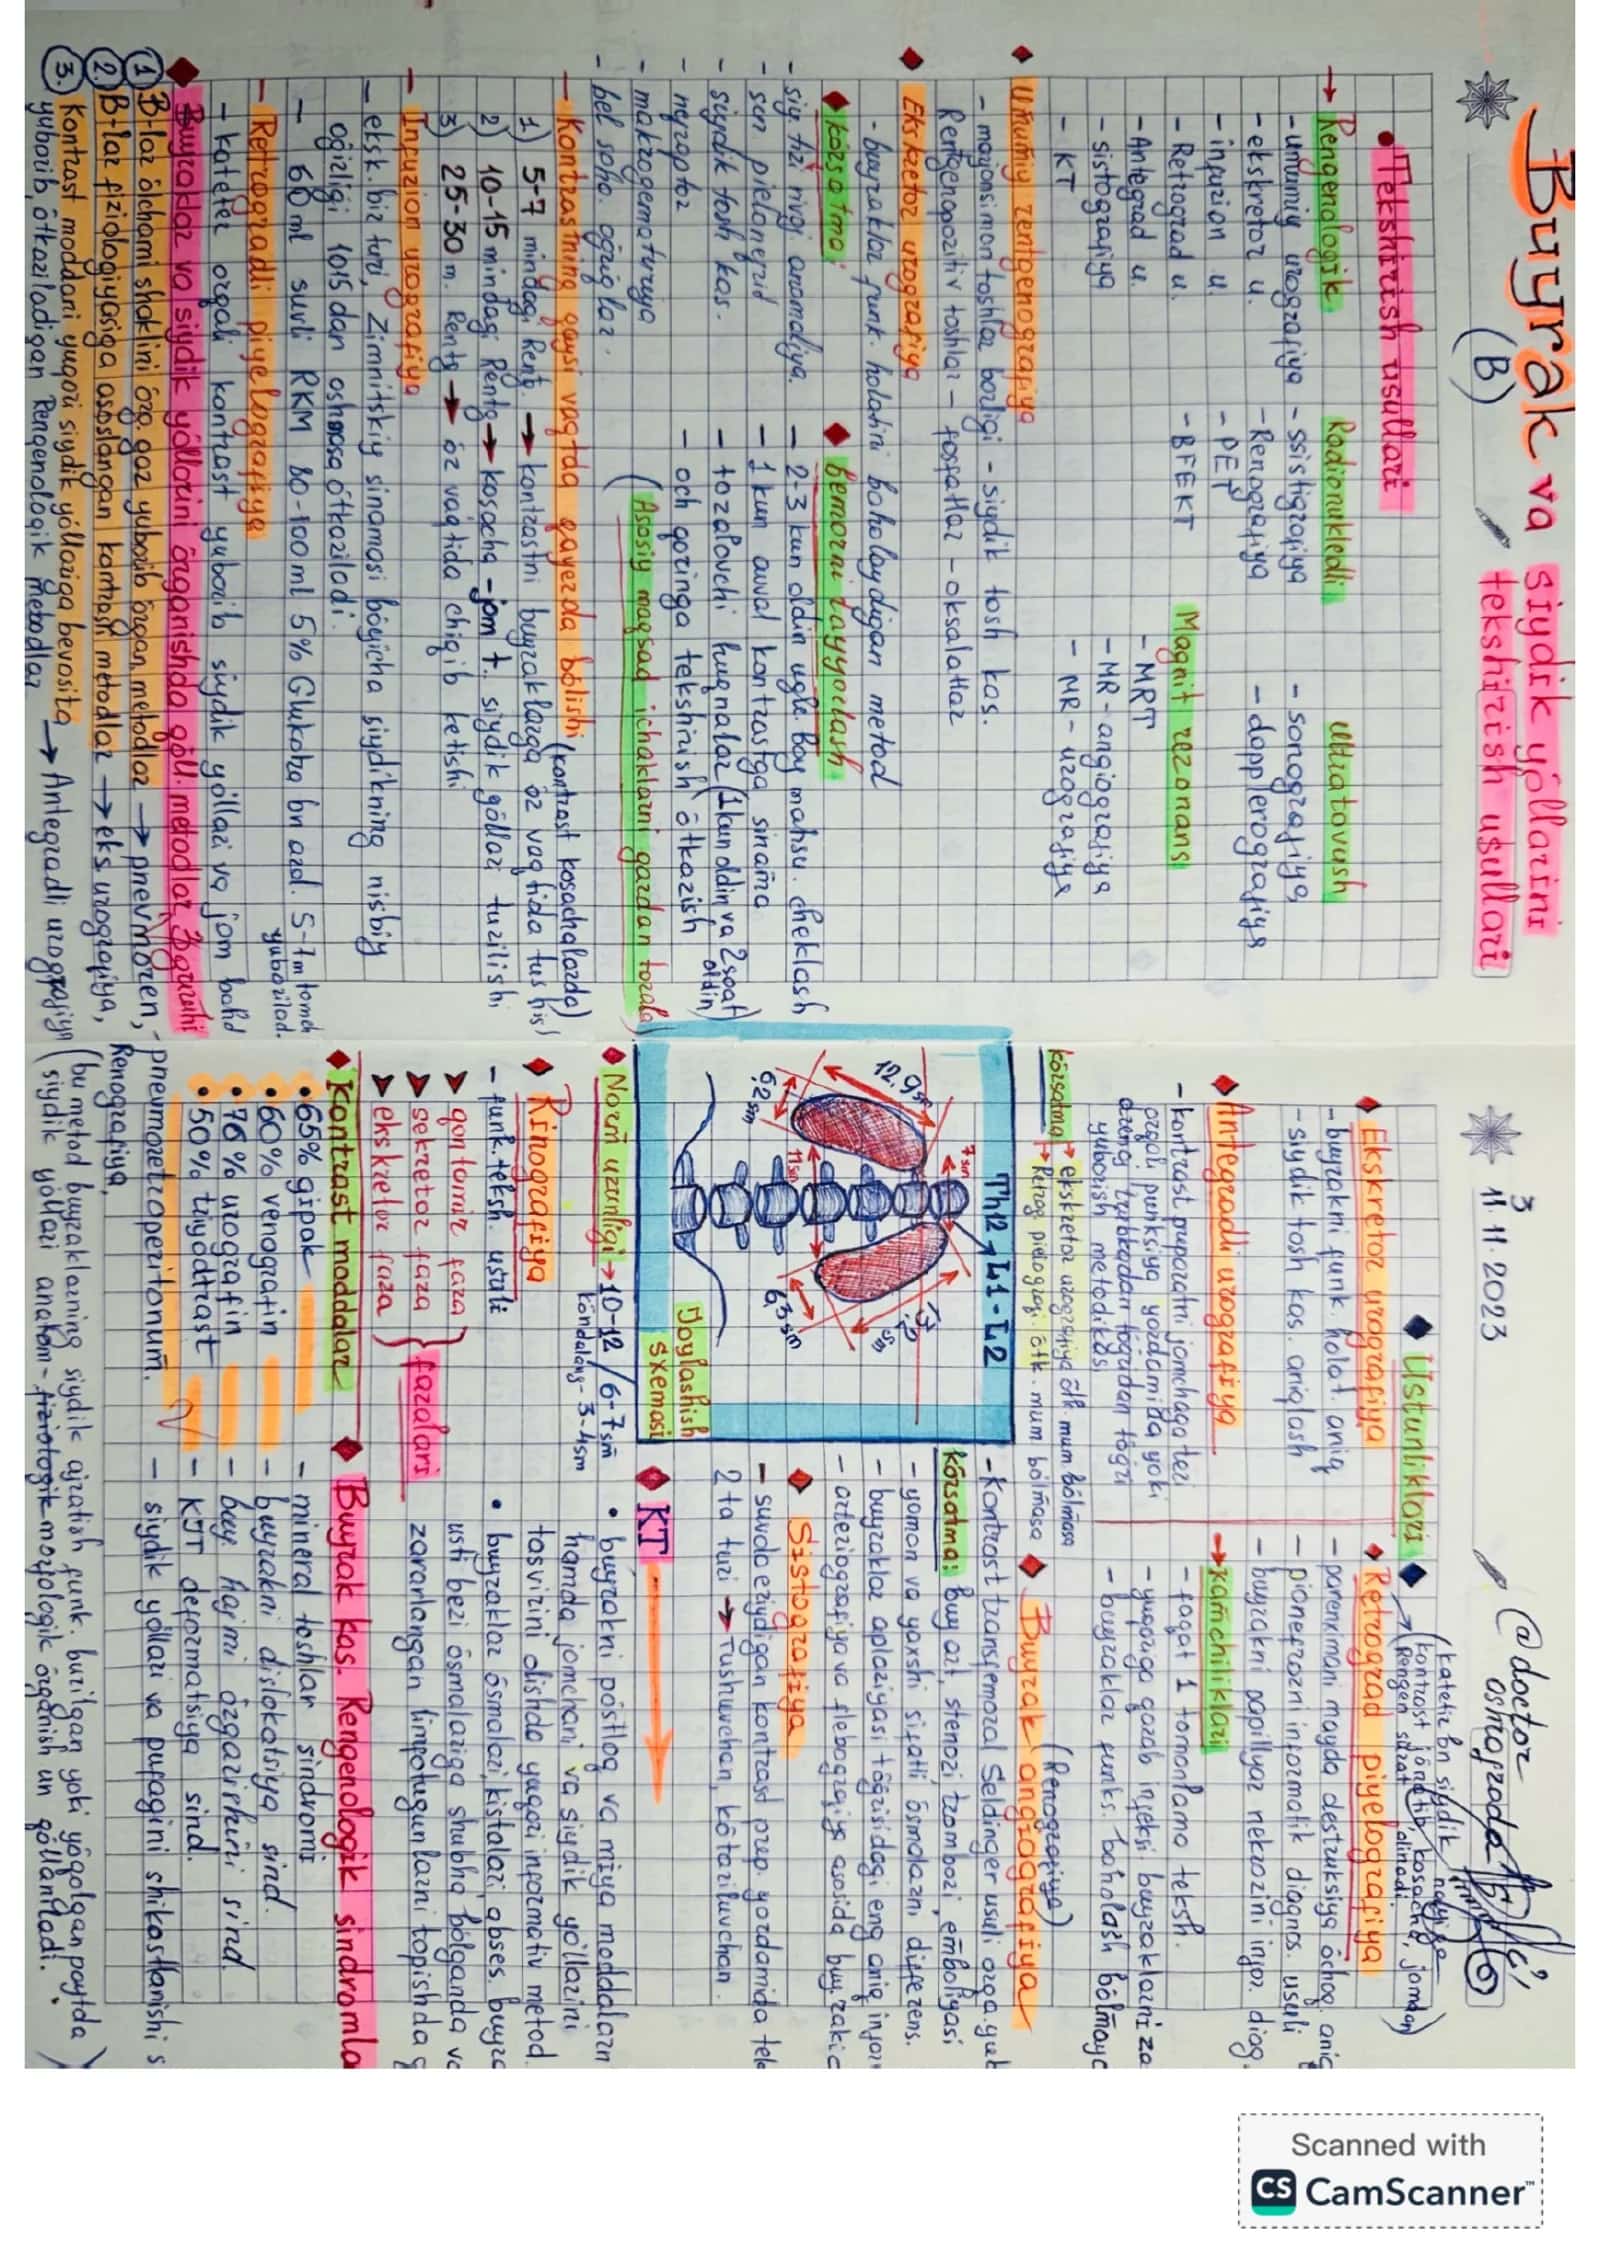 Buyrak va siydik yo'llarini
(B) tekshirish usullari
• Tekshirish usullari
→ Rengenologik
- umumiy urografiya
- ekskretor u.
- infuzion u.
- Retrograd u.
- Antegrad u.
- sistografiya
- KT
Radionukledli
- ssistigrafiya
- Renografiya
- PET
- BFEKT
Ultratovush
- sonografiya
- dopplerografiya
Magnit rezonans
- MRT
- MR-angiografiya
- MR-urografiya
♦ Umumiy rentgenografiya
- marjonsimon toshlar borligi - siydik tosh kas.
Rentgenopozitiv toshlar - fosfatlar - oksalatlar
♦ Ekskretor urografiya
- buyraklar funk. holatini baholaydigan metod
♦ ko'rsatma:
- siy. tizi rivoj. anomaliya.
- sur pielonefrid
- siydik tosh kas.
- nefroptoz
- makrogematuriya
- bel soha. og'riqlar.
♦ Bemorni tayyorlash
- 2-3 kun oldin ugle. boy mahsu. cheklash
- 1 kun avval kontrastga sinama
- tozalovchi huqnalar (1 kun oldin va 2 soat oldin)
- och qoringa tekshirish o'tkazish
(Asosiy maqsad ichaklarni gazdan tozala)
- Kontrastning qaysi vaqtda qayerda bo'lishi (kontrast kosachalarda)
1) 5-7 mindagi Reng. → kontrastni buyraklarga o'z vaqtida tushishi
2) 10-15 mindagi Rentg → kosacha-jom t. siydik yo'llari tuzilishi
3) 25-30 m. Rentg → o'z vaqtida chiqib ketishi
- Infuzion urografiya
- eksk. bir turi, Zimnitskiy sinamasi bo'yicha siydikning nisbiy
og'irligi 1015 dan oshmasa o'tkaziladi.
- 60 ml suvli RKM 80-100 ml 5% Glukoza bn aral. 5-7m tomch yuborilad.
- Retrogradli piyelografiya
- kateter orqali kontrast yuborib siydik yo'llari va jom bahol
♦ Buyraklar va siydik yo'llarini o'rganishda qo'll. metodlar 3 guruh:
1) B-lar o'lchami shaklini o'rg. gaz yuborib o'rgan. metodlar → pnevmoren,
2. B-lar fiziologiyasiga asoslangan kontrast metodlar → eks urografiya,
3. Kontrast moddani yuqori siydik yo'llariga bevosita
yuborib, o'tkaziladigan Rengenologik metodlar → Antegradli urografiya
3
11.11.2023
@doctor
oshrafzoda
♦ Ustunliklari ♦
♦ Ekskretor urografiya
- buyrakni funk. holat. aniq
- siydik tosh kas. aniqlash
♦ Antegradli urografiya
- kontrast preparatni jomchaga teri
orqali punksiya yordamida yoki
drenaj trubkadan to'g'ridan to'g'ri
yuborish metodikasi
ko'rsatma → ekskretor urografiya o'tk. mum. bo'lmasa
→ Retrog. pielografi. o'tk. mum bo'lmasa
♦ Retrograd piyelografiya
(katetir bn siydik nayiga
kontrast jo'natib, kosacha, jomdan
Rengen surat olinadi.)
- parenximani mayda destruksiya o'chog. aniq
- pionefrozni informatik diagnos. usuli
- buyrakni papillyar nekrozini infor. diag.
→ Kamchiliklari
- faqat 1 tomonlama teksh.
- yuqoriga qarab infeksi buyraklarni za
- buyraklar funks. baholash bo'lmayd
Th12 → L1-L2
12,9 sm
6,2 sm
7 sm
11 sm
13,2 sm
6,3 sm
Joylashish
sxemasi
♦ Buyrak angiografiya
(Renografiya)
- Kontrast transfemoral Seldinger usuli orqa. yub
ko'rsatma: buy. art, stenozi, trombozi, emboliyasi
- yomon va yaxshi sifatli o'smalarni differens.
- buyraklar aplaziyasi to'g'risidagi eng aniq infor
- arteriografiya va flebografiya asosida buy.rakic
♦ Sistografiya
- suvda eriydigan kontrast prep. yordamida tek
2 ta turi → Tushuvchan, ko'tariluvchan.
♦ Norm uzunligi → 10-12 / 6-7 sm
ko'ndalang - 3-4sm
♦ Rinografiya
- funk. teksh. usuli
➤ qontomir faza
➤ sekretor faza
➤ ekskretor faza
} fazalari
♦ KT
• buyrakni po'stloq va miya moddalarn
hamda jomchani va siydik yo'llarini
tasvirini olishda yuqori informativ metod.
• buyraklar o'smalari, kistalari, abses. buyra
usti bezi o'smalariga shubha bo'lganda va
zararlangan limfotugunlarni topishda q
♦ Kontrast moddalar
• 65% gipak
• 60% venografin
• 76% urografin
• 50% triyodtrast
♦ Buyrak kas. Rengenologik sindromla
- mineral toshlar sindromi
- buyrakni dislokatsiya sind.
- buy. hajmi o'zgarishini sind.
- KJT deformatsiya sind.
- siydik yo'llari va pufagini shikastlanishi s
- pnevmoretroperitonum.
Renografiya,
(bu metod buyraklarning siydik ajratish funk. buzilgan yoki yo'qolgan paytda
(siydik yo'llari anatom-fiziologik morfologik o'rganish un qo'llaniladi.
Scanned with
CS CamScanner™